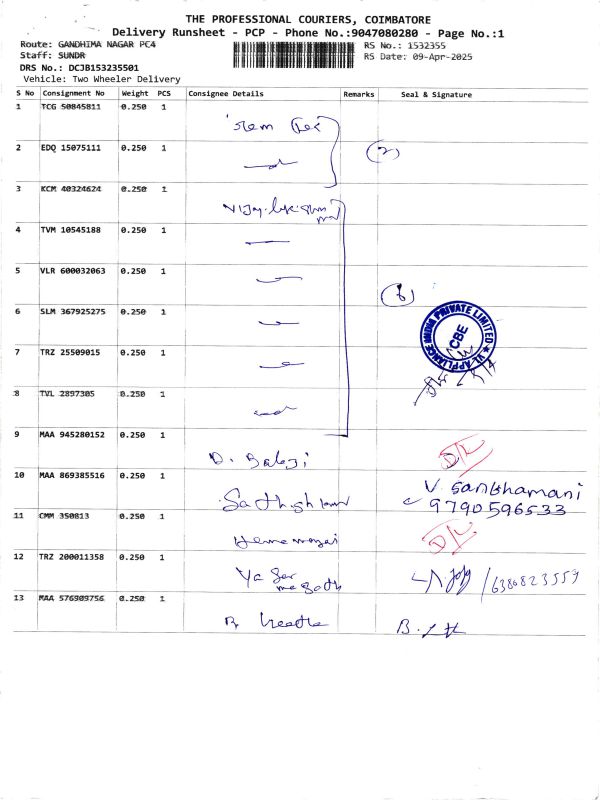 THE PROFESSIONAL COURIERS, COIMBATORE
Delivery Runsheet - PCP - Phone No.:9047080280 - Page No.:1
Route: GANDHIMA NAGAR PC4 RS No.: 1532355
Staff: SUNDR RS Date: 09-Apr-2025
DRS No.: DCJB153235501
Vehicle: Two Wheeler Delivery
S No Consignment No Weight PCS Consignee Details Remarks Seal & Signature
1 TCG 50845811 0.250 1
2 EDQ 15075111 0.250 1
(2)
3 KCM 40324624 0.250 1
4 TVM 10545188 0.250 1
5 VLR 600032063 0.250 1
(6)
6 SLM 367925275 0.250 1
VI APPLIANCE INDIA PRIVATE LIMITED ★ CBE
7 TRZ 25509015 0.250 1
8 TVL 2897305 0.250 1
9 MAA 945280152 0.250 1
D. Balaji D/L
10 MAA 869385516 0.250 1
V. Sankhamani
9790596533
11 CMM 350813 0.250 1
D/L
12 TRZ 200011358 0.250 1
6380823559
13 MAA 576909756 0.250 1